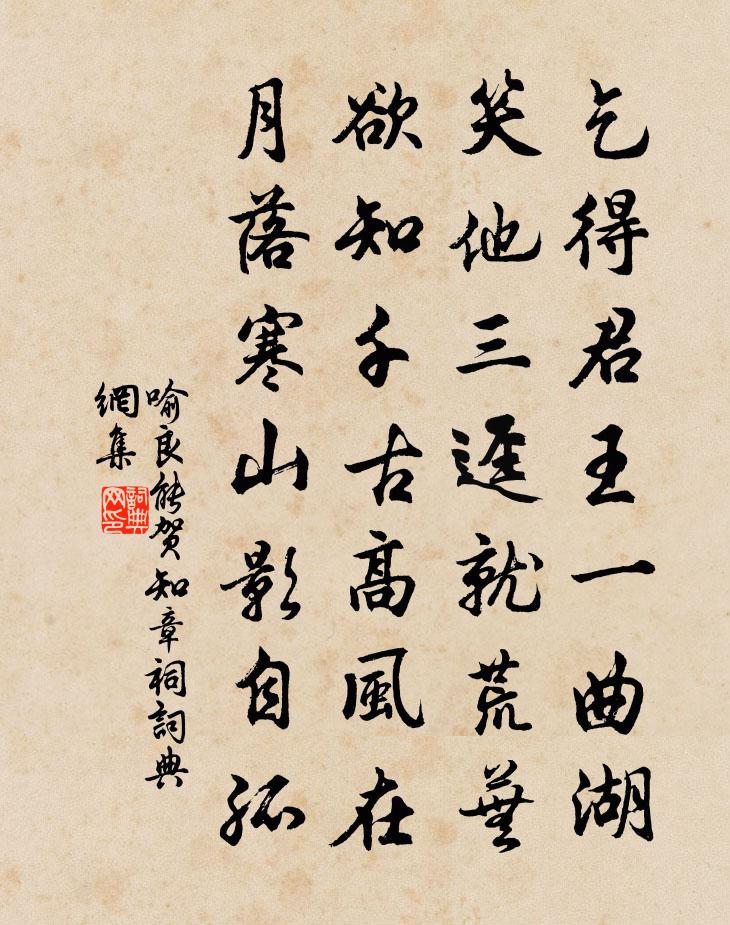 乞得君王一曲湖
笑他三逕就荒蕪
欲知千古高風在
月落寒山影自孤
喻良能賀知章祠詞典
網集
詞典
网印